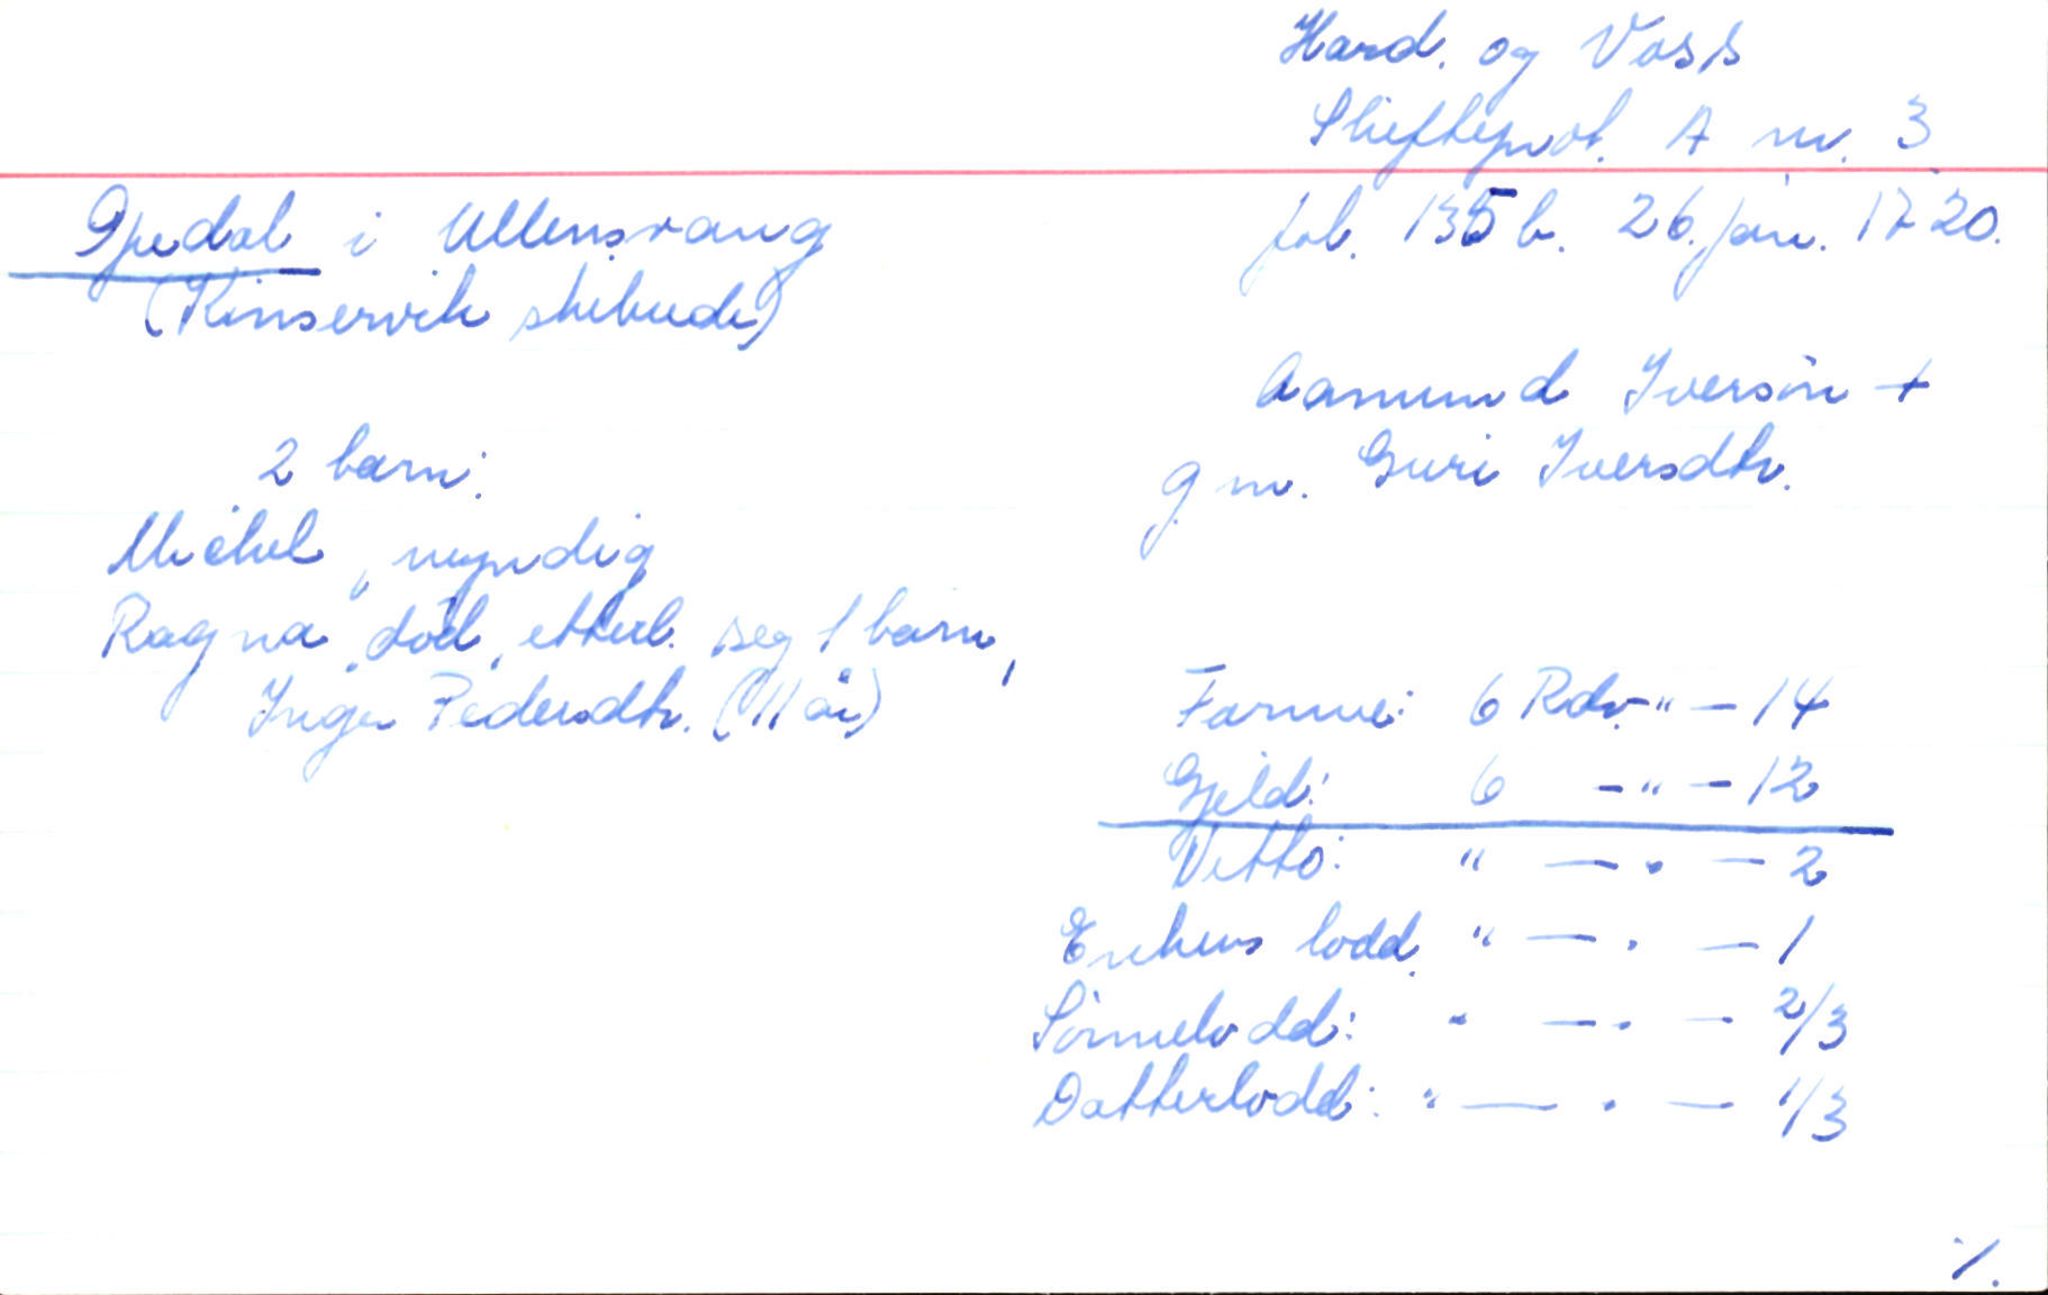 Hard. og Voss
Skifteprot. A nr. 3
fol. 135 b. 26. jan. 1720.
Opedal i Ullensvang
(Kinservik skibrede)
Aamund Iversön +
g m. Guri Iversdtr.
2 barn:
Michel, myndig
Ragna, död, etterl. seg 1 barn,
Inger Pedersdtr. (11 år)
Formue: 6 Rdr. - " - 14
Gjeld: 6 - " - 12
Netto: " - " - 2
Enkens lodd " - " - 1
Sönnelodd: " - " - 2/3
Datterlodd: " - " - 1/3
%.